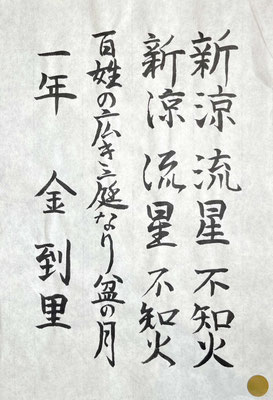 新涼 流星 不知火
新涼 流星 不知火
百姓の広き三庭なり盆の月
一年 金到里